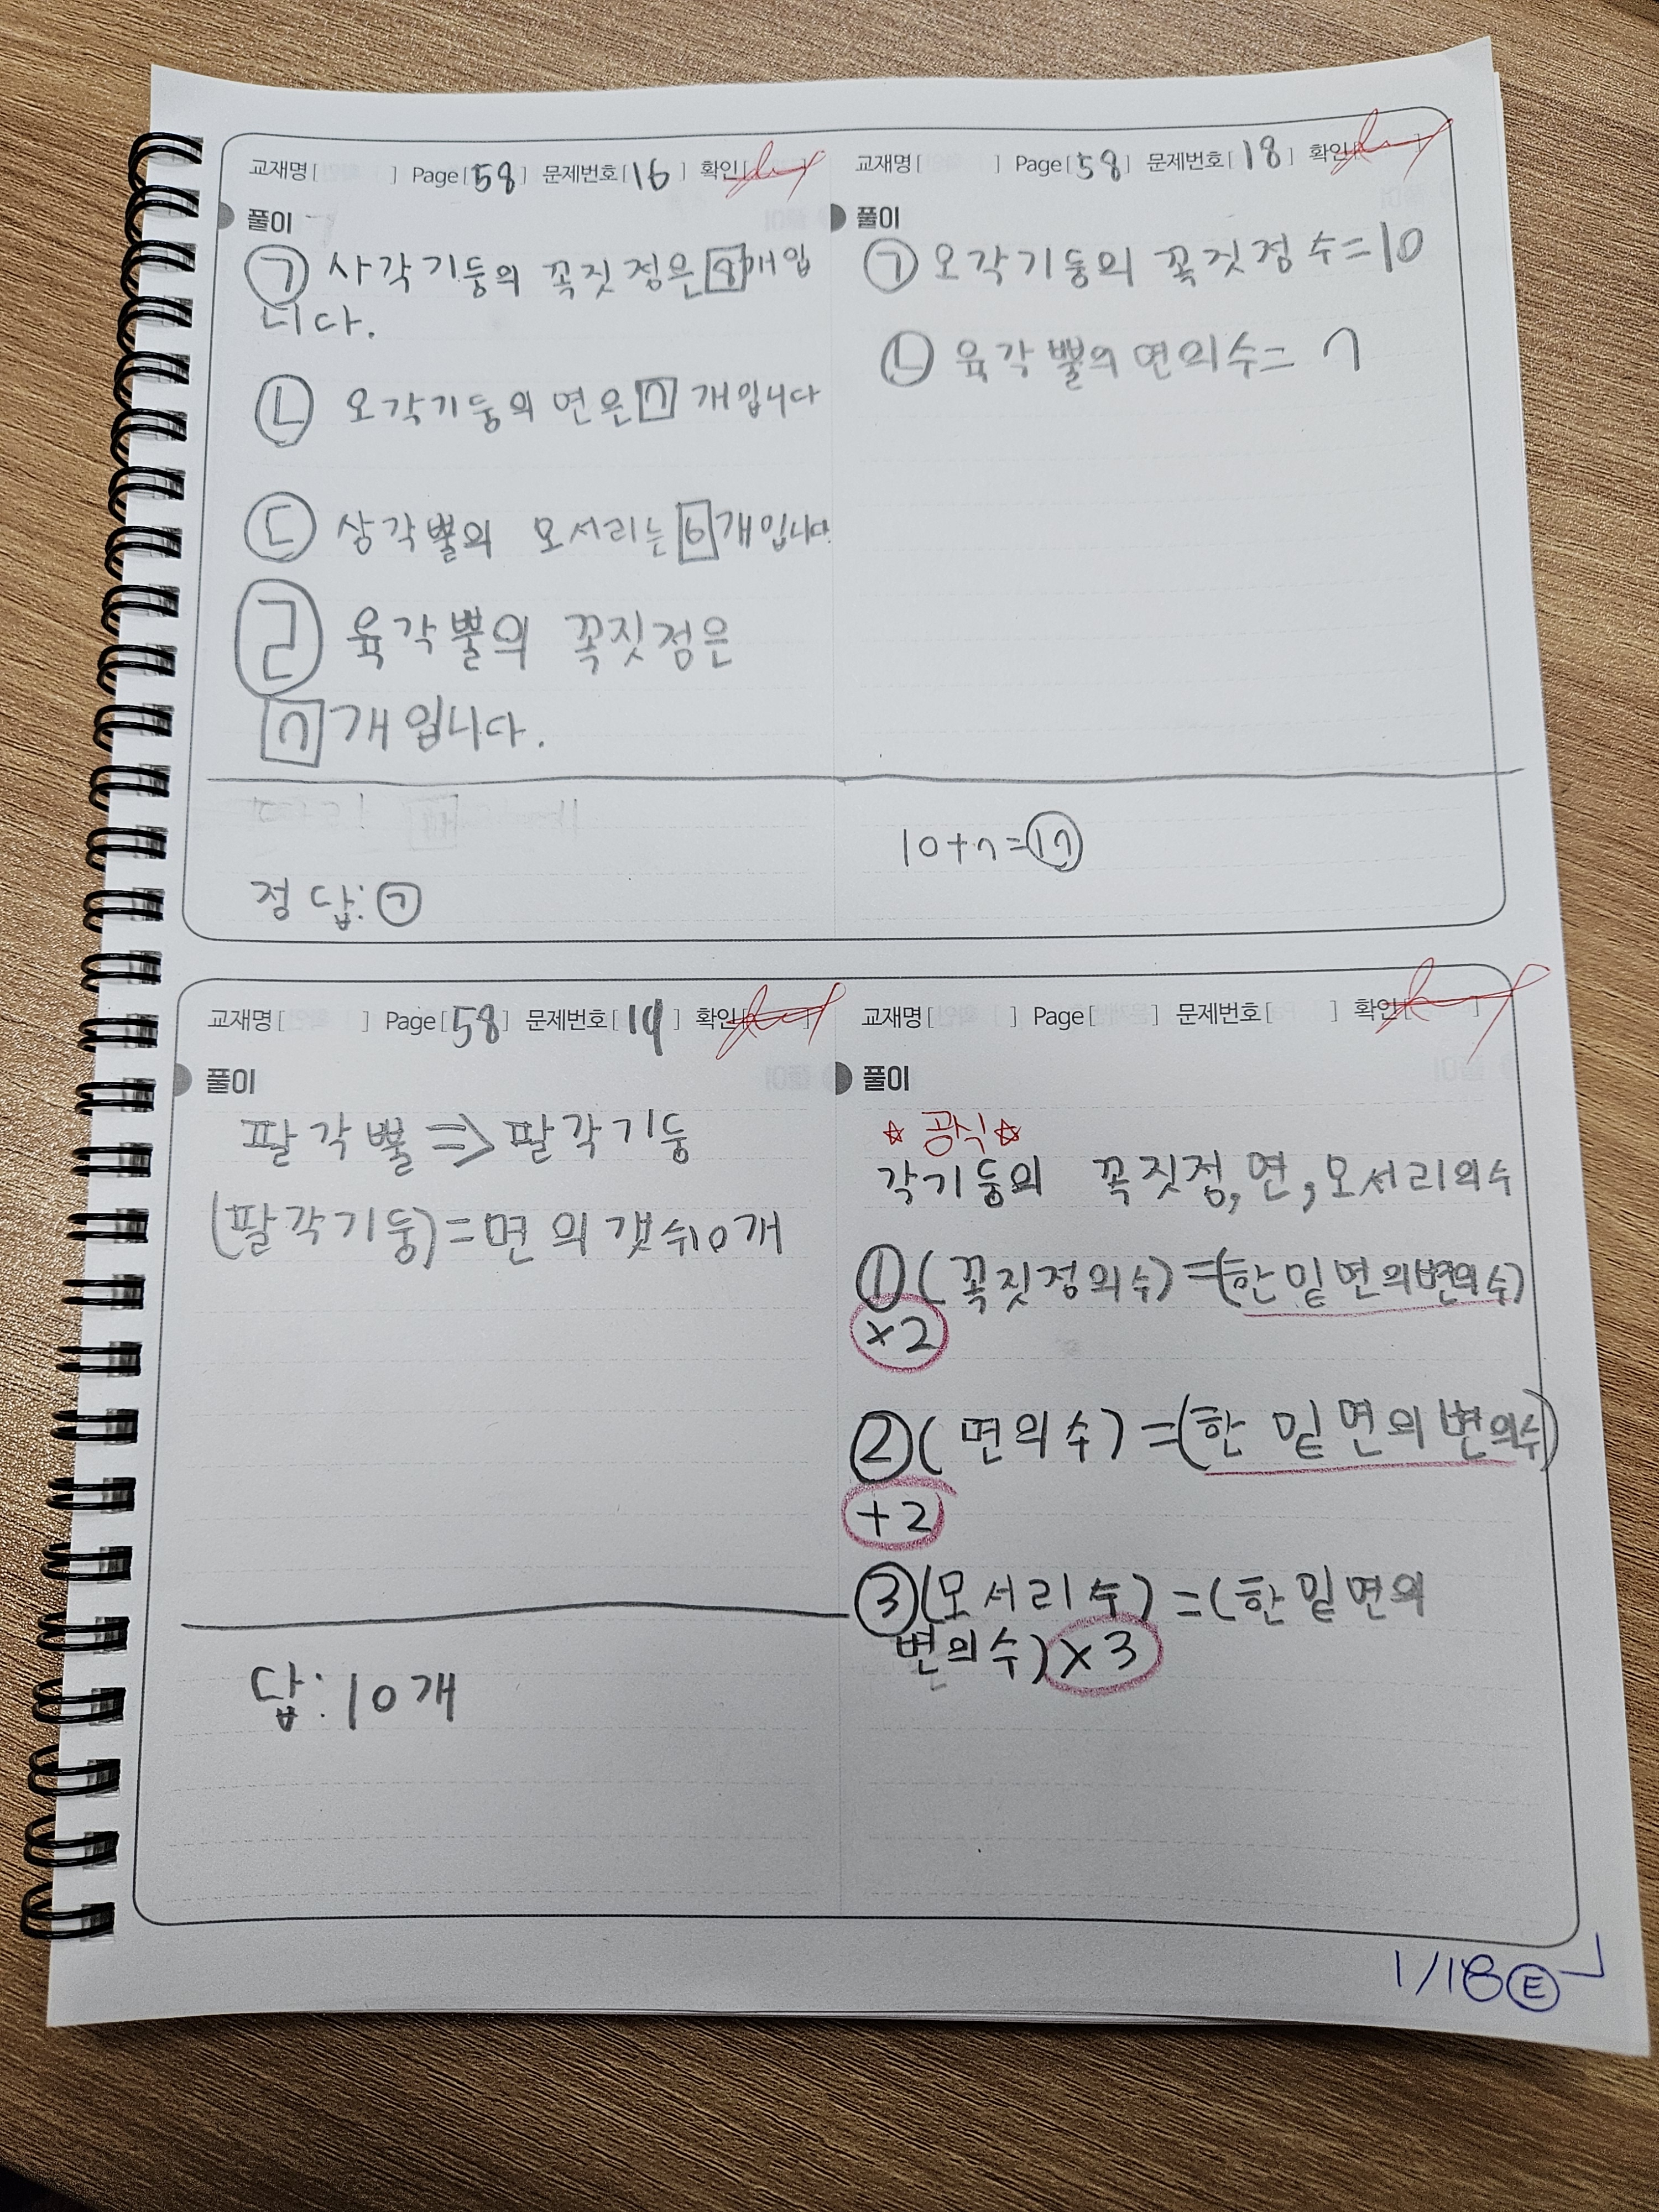 교재명[ ] Page[58] 문제번호[16] 확인[ ]
풀이
㉠ 사각기둥의 꼭짓점은 8개입
니다.
㉡ 오각기둥의 면은 7개입니다
㉢ 삼각뿔의 모서리는 6개입니다.
㉣ 육각뿔의 꼭짓점은
7개입니다.
정답: ㉠
교재명[ ] Page[58] 문제번호[18] 확인[ ]
풀이
㉠ 오각기둥의 꼭짓점 수=10
㉡ 육각뿔의 면의수= 7
10+7=17
교재명[ ] Page[58] 문제번호[19] 확인[ ]
풀이
팔각뿔 => 팔각기둥
(팔각기둥)=면의 갯수10개
답: 10개
교재명[ ] Page[ ] 문제번호[ ] 확인[ ]
풀이
☆ 공식 ☆
각기둥의 꼭짓점, 면, 모서리의수
①(꼭짓점의수)=(한밑면의변의수)
×2
②(면의수)=(한 밑면의변의수)
+2
③(모서리수)=(한밑면의
변의수)×3
1/18 Ⓔ